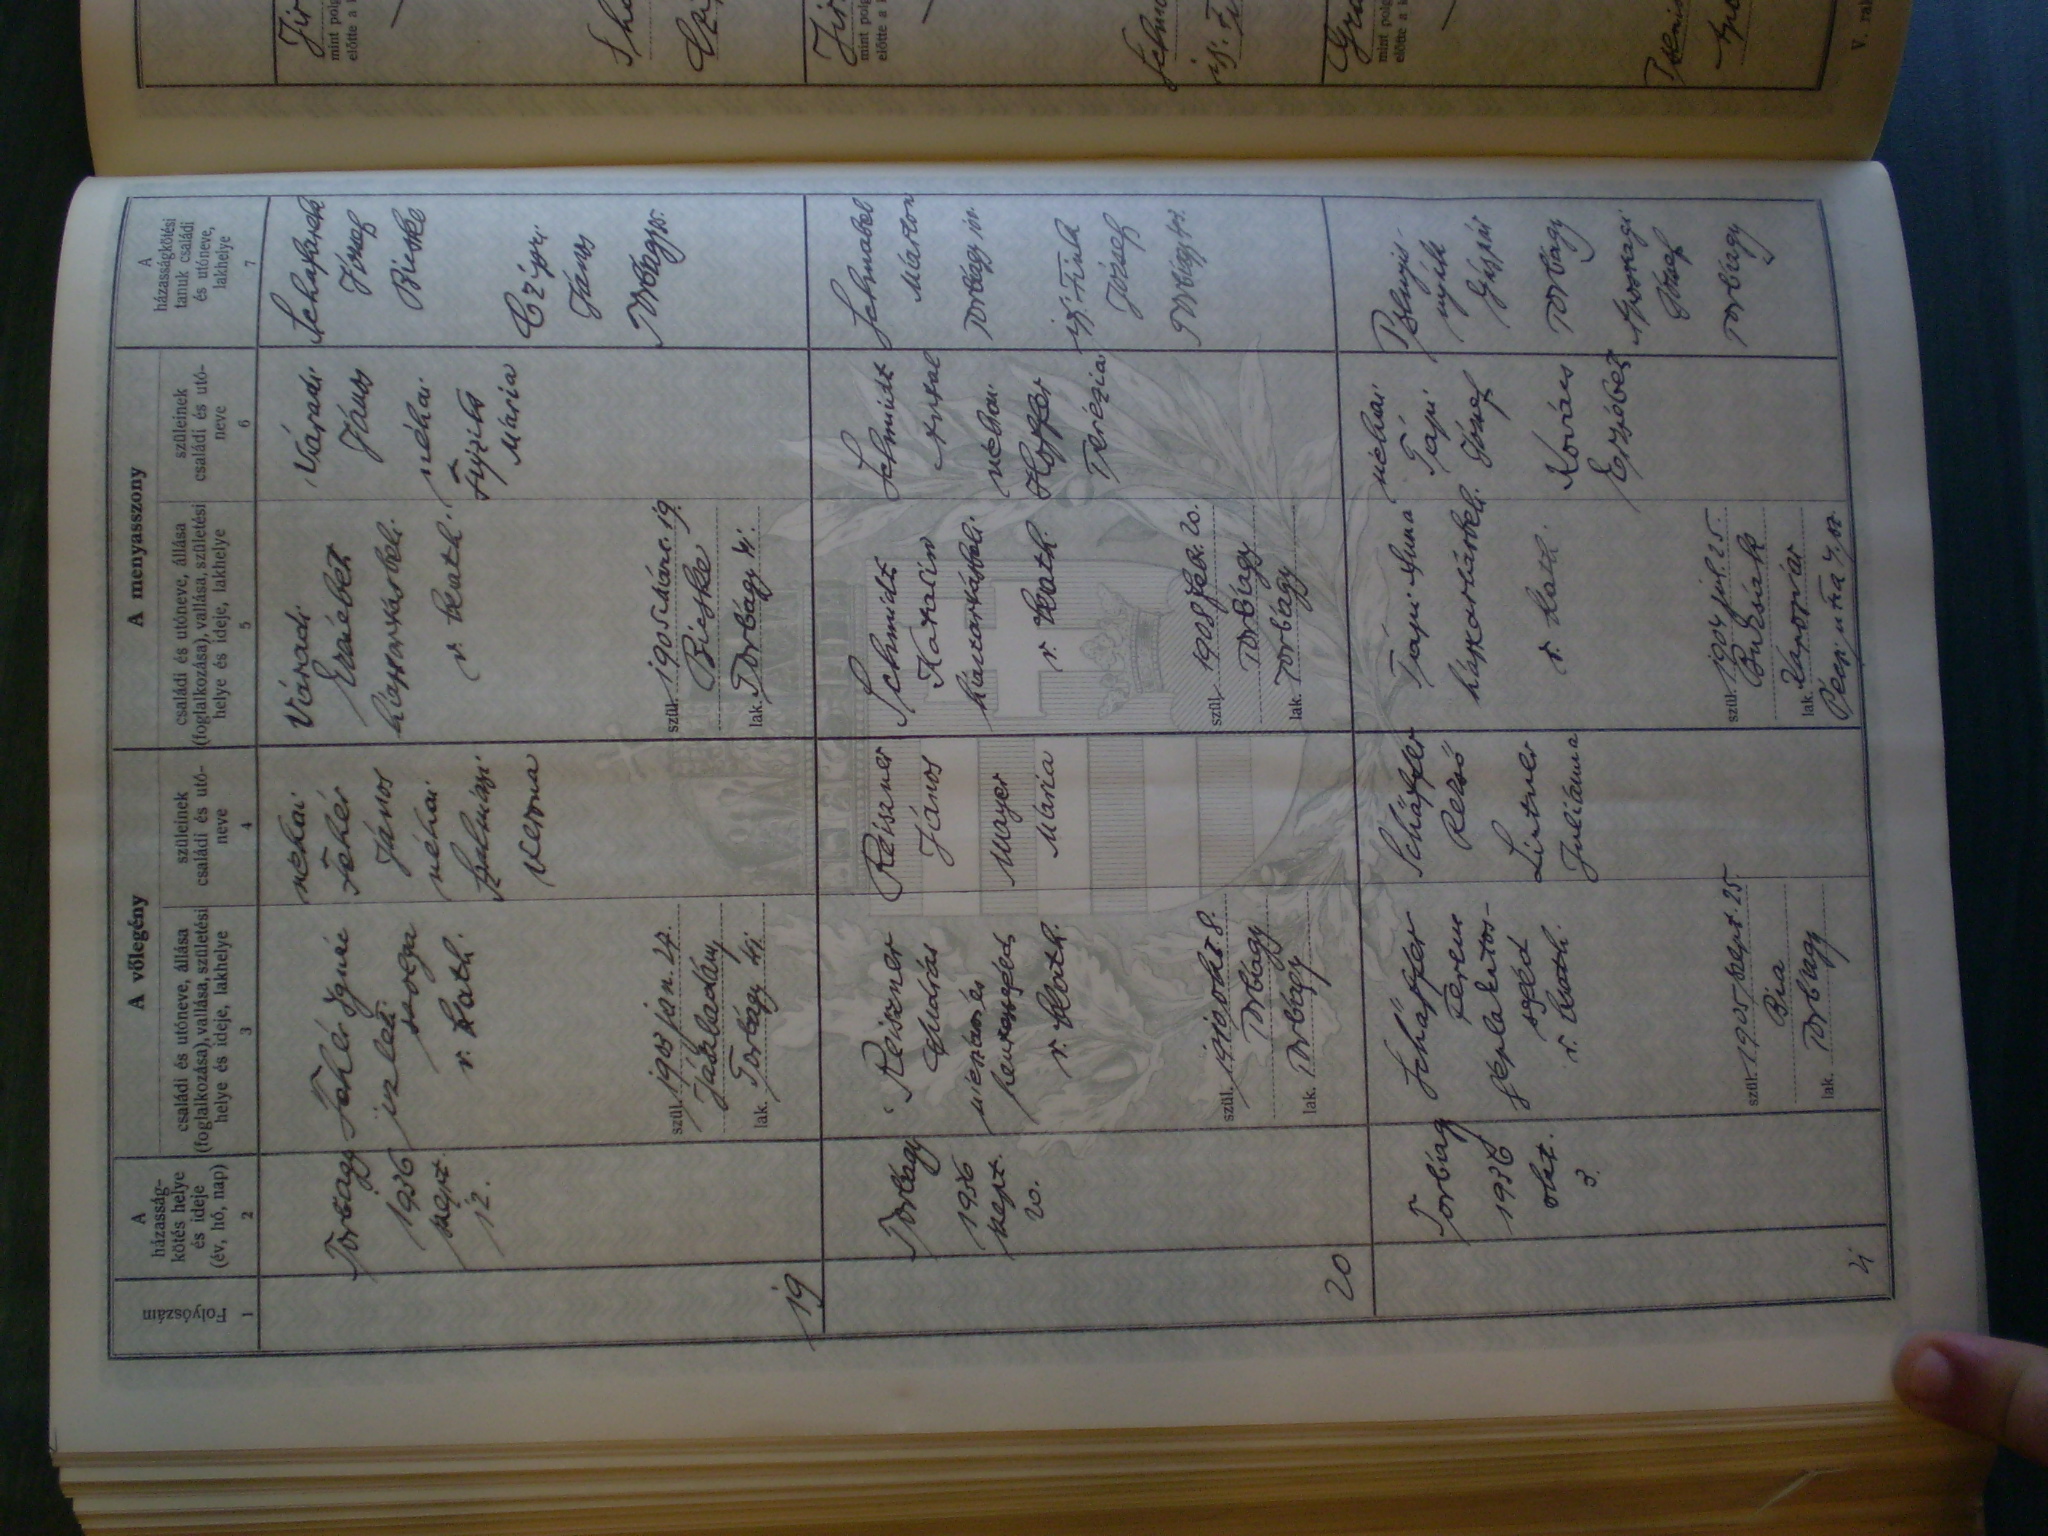 A
házasság-
kötés helye
és ideje
(év, hó, nap)
A vőlegény
családi és utóneve, állása
(foglalkozása), vallása, születési
helye és ideje, lakhelye
szüleinek
családi és utó-
neve
A menyasszony
családi és utóneve, állása
(foglalkozása), vallása, születési
helye és ideje, lakhelye
szüleinek
családi és utó-
neve
A
házasságkötési
tanuk családi
és utóneve,
lakhelye
Folyószám
1
2
3
4
5
6
7
19
Torbágy
1936
szept.
12.
Fehér Ignác
szolga
r. kath.
szül. 1903 jan. 27.
Jászladány
lak. Torbágy
néhai
Fehér
János
néhai
Szalmási
Verona
Váradi
Erzsébet
háztartásbeli
r. kath.
szül. 1905 márc. 19.
Bicske
lak. Torbágy
Váradi
János
néhai
Füzitő
Mária
József
Bicske
Czippi
János
Torbágy
20
Torbágy
1936
szept.
20.
Reiszner
András
mészáros és
hentessegéd
r. kath.
szül. 1910 okt. 8.
Torbágy
lak. Torbágy
Reiszner
János
Mayer
Mária
Schmidt
Katalin
háztartásbeli
r. kath.
szül. 1908 febr. 20.
Torbágy
lak. Torbágy
Schmidt
Antal
néhai
Hoffer
Terézia
Schnabel
Márton
Torbágy
ifj. Fink
József
Torbágy
Torbágy
1936
okt.
3.
Schäffer
Ferenc
géplakatos-
segéd
r. kath.
szül. 1905 szept. 25.
Bia
lak. Torbágy
Schäffer
Rezső
Lintner
Juliánna
Tápi Anna
háztartásbeli
r. kath.
szül. 1904 jul. 25.
Buzsák
lak. Kaposvár
néhai
Tápi
József
Kovács
Erzsébet
Gáspár
Torbágy
József
Torbágy
mint polg
előtte a
mint polg
előtte a
mint polg
előtte a